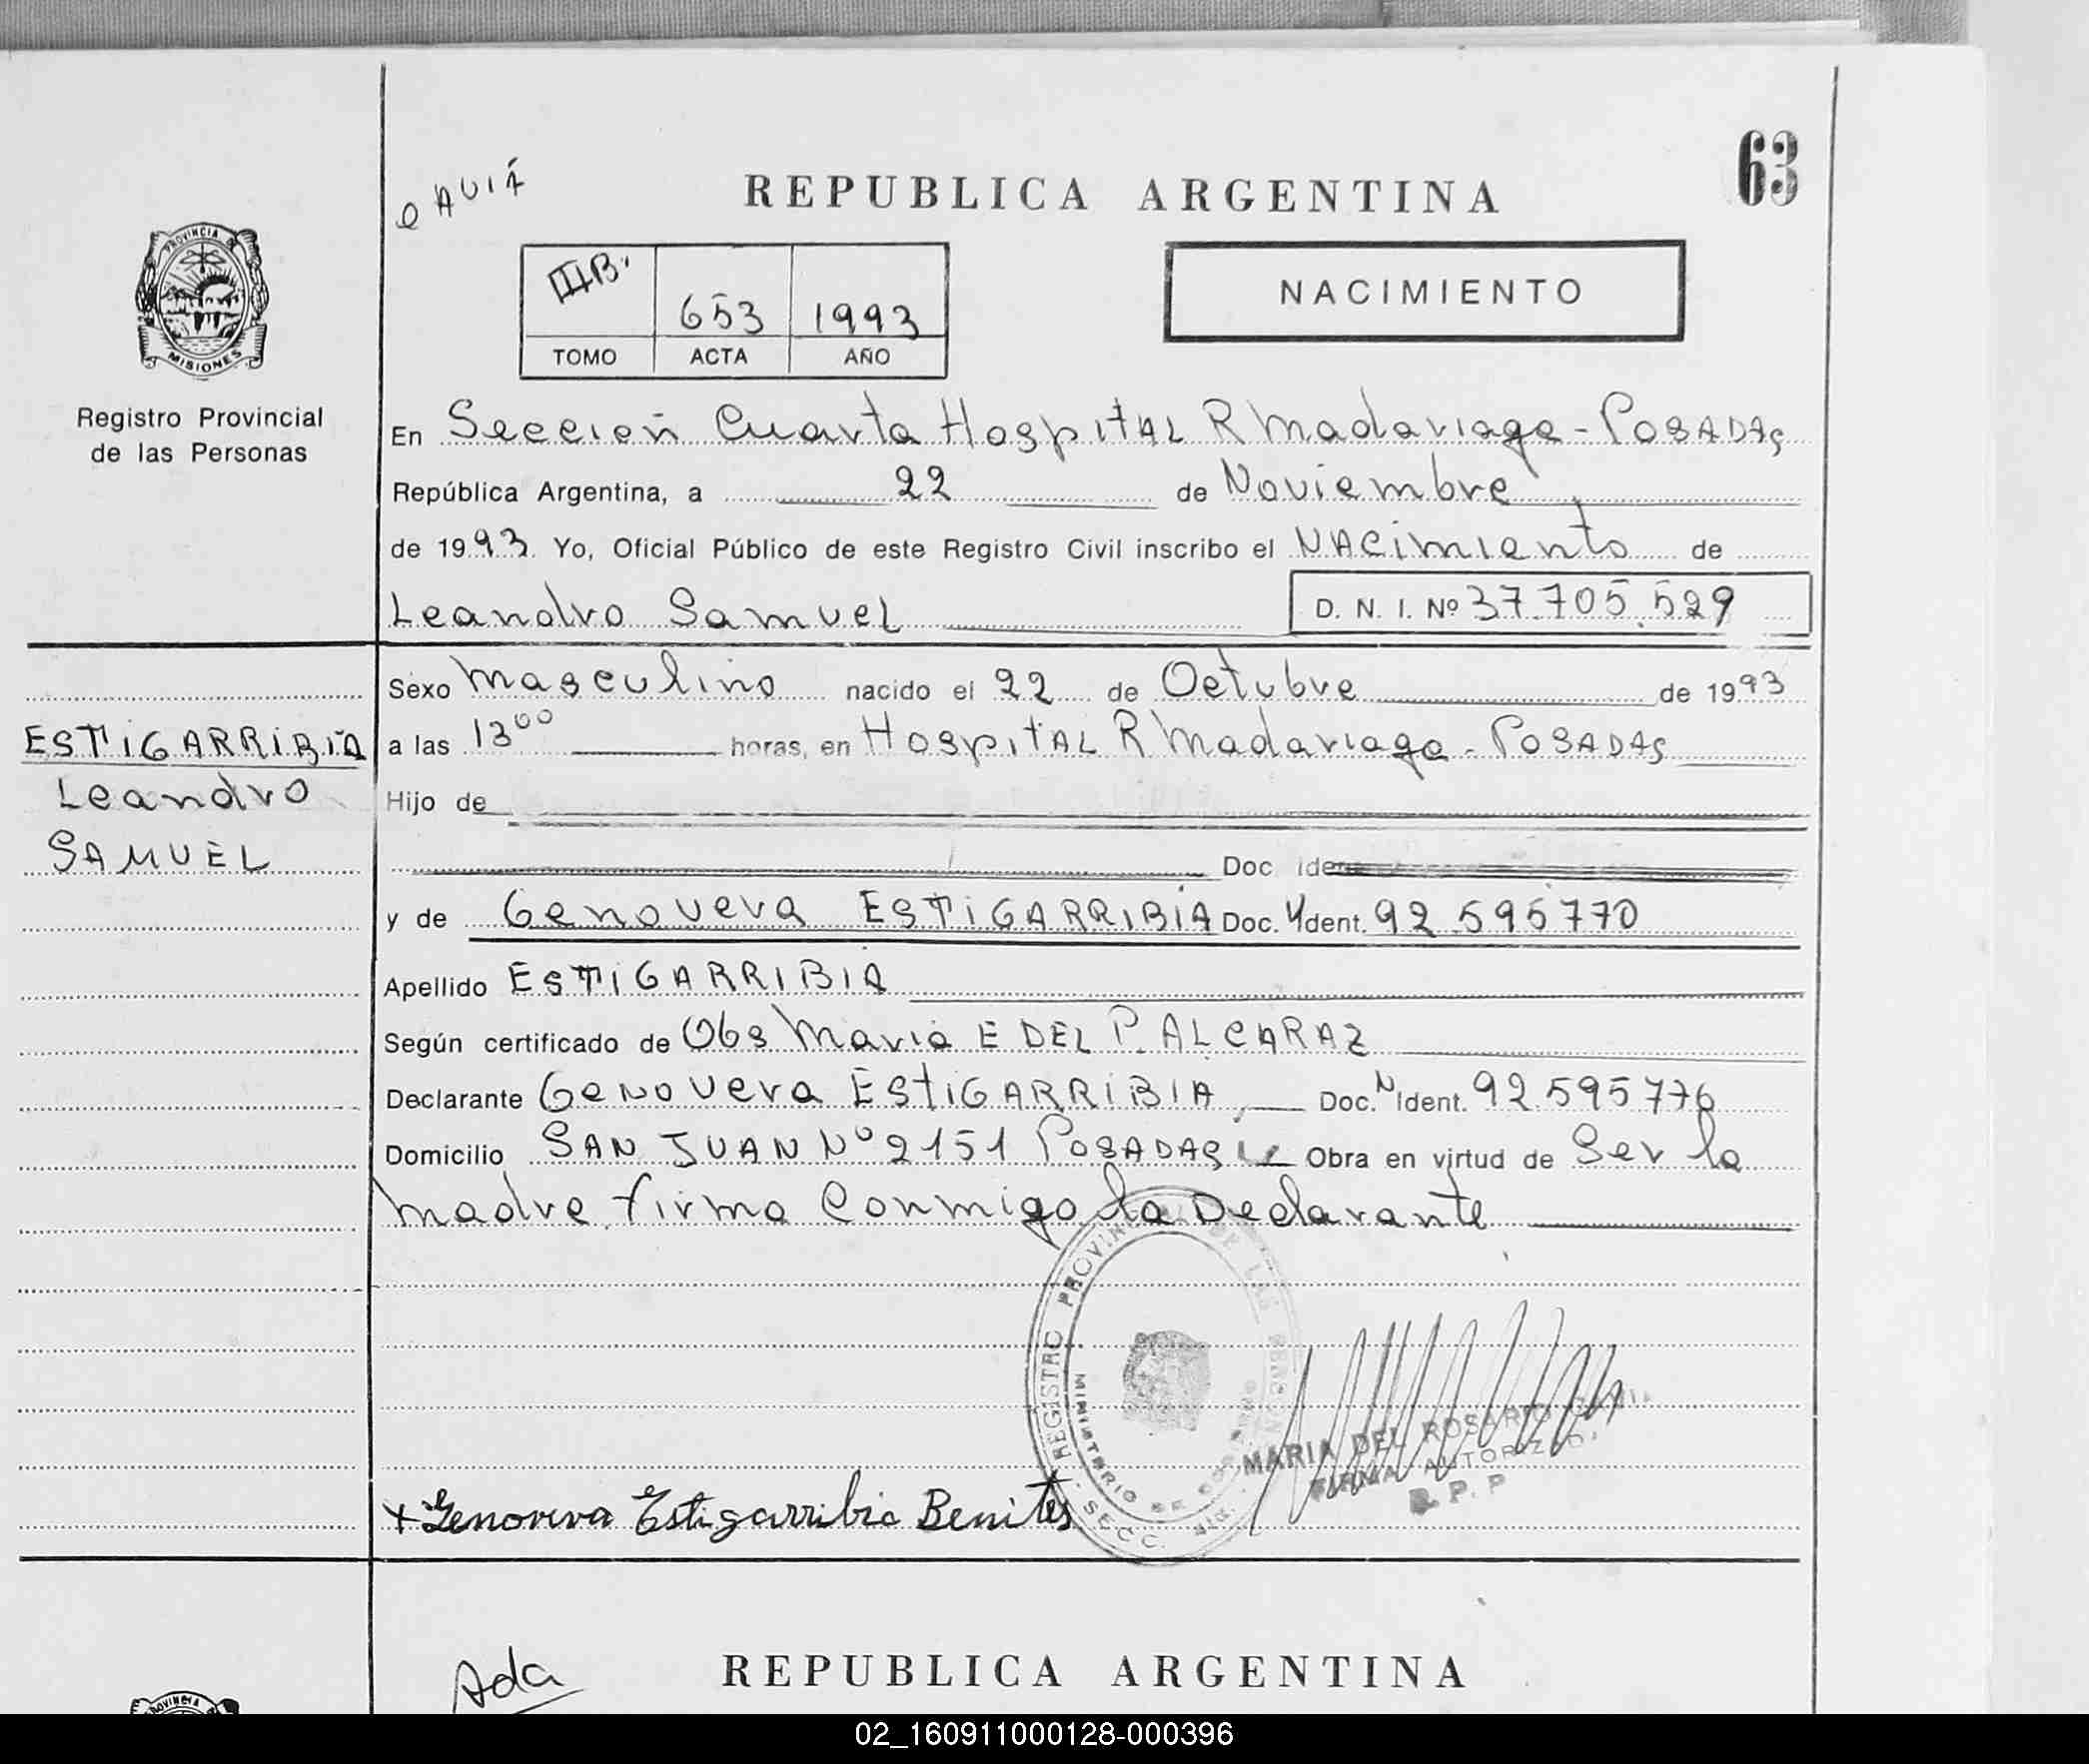 63
REPUBLICA ARGENTINA
PROVINCIA DE
MISIONES
IIIB.
653
1993
TOMO
ACTA
AÑO
NACIMIENTO
Registro Provincial
de las Personas
En Sección Cuarta Hospital R Madariaga - Posadas
República Argentina, a 22 de Noviembre
de 1993 Yo, Oficial Público de este Registro Civil inscribo el Nacimiento de
Leandro Samuel D. N. I. Nº 37.705.529
Sexo Masculino nacido el 22 de Octubre de 1993
a las 13 00 horas, en Hospital R Madariaga - Posadas
ESTIGARRIBIA
Leandro
SAMUEL
Hijo de
Doc. Ident.
y de Genoveva ESTIGARRIBIA Doc. Ident. 92.595770
Apellido ESTIGARRIBIA
Según certificado de Obs Maria E DEL P. ALCARAZ
Declarante Genoveva ESTIGARRIBIA Doc. Ident. 92.595770
Domicilio SAN JUAN Nº 2151 POSADAS Obra en virtud de Ser la
madre firma Conmigo la Declarante
REGISTRO PROVINCIAL DE LAS PERSONAS
MINISTERIO DE GOBIERNO
SECC.
MARIA DEL ROSARIO
FIRMA AUTORIZADA
R. P. P
+ Genoveva Estigarribia Benites
Ada
REPUBLICA ARGENTINA
PROVINCIA
02_160911000128-000396